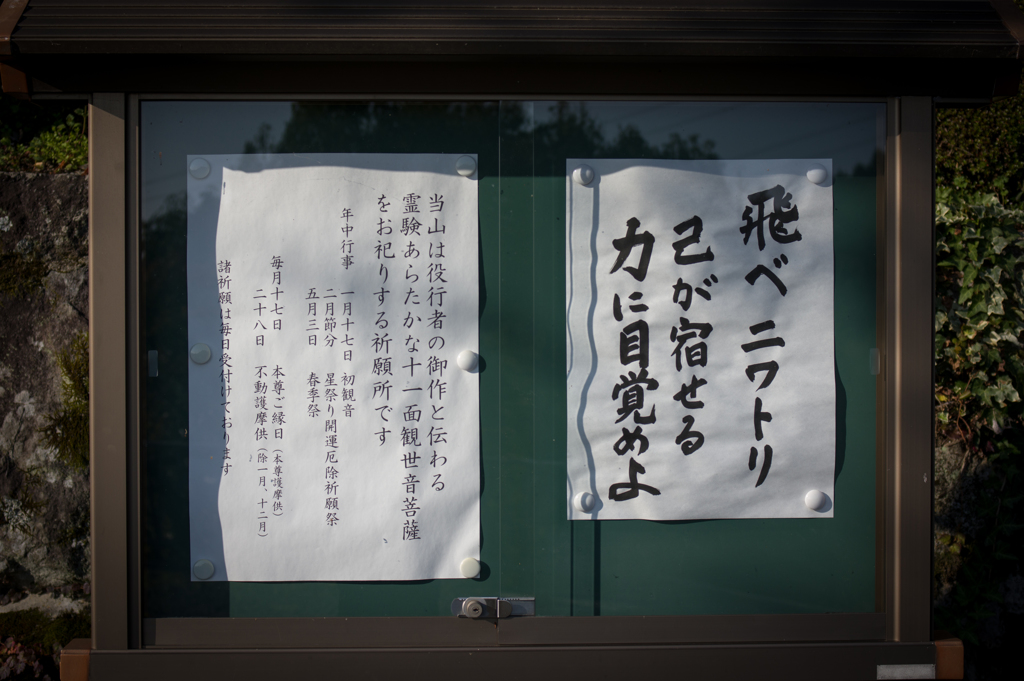 飛べ ニワトリ
己が宿せる
力に目覚めよ
当山は役行者の御作と伝わる
霊験あらたかな十一面観世音菩薩
をお祀りする祈願所です
年中行事 一月十七日 初観音
二月節分 星祭り開運厄除祈願祭
五月三日 春季祭
毎月十七日 本尊ご縁日（本尊護摩供）
二十八日 不動護摩供（除一月、十二月）
諸祈願は毎日受付けております